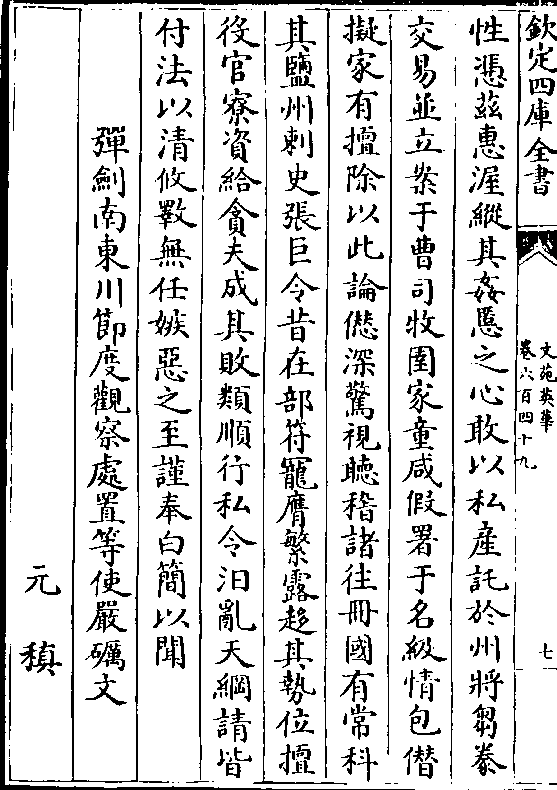 欽定四庫全書
文苑英華
卷六百四十九
七
性憑茲惠渥縱其姦慝之心敢以私產託於州將芻豢
交易並立案于曹司牧圉家童咸假署于名級情包僭
擬家有擅除以此論愆深驚視聽稽諸往冊國有常科
其鹽州刺史張巨令昔在部符寵膺繁露趍其勢位擅
役官寮資給貪夫成其敗類順行私令汩亂天綱請皆
付法以清攸斁無任嫉惡之至謹奉白簡以聞
彈劍南東川節度觀察處置等使嚴礪文
元稹